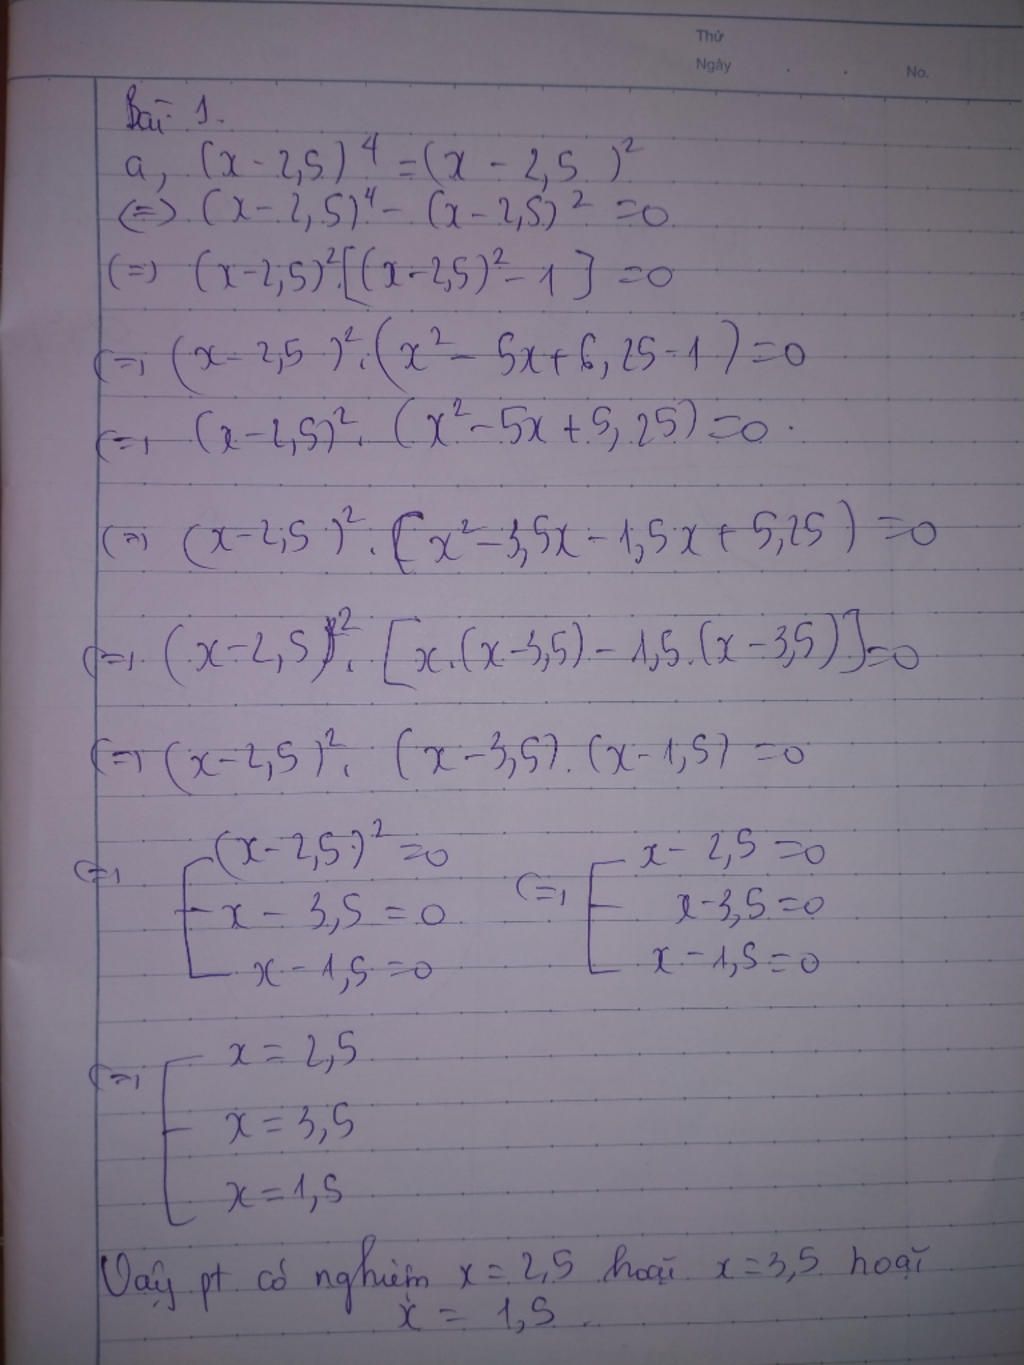 Thứ
Ngày . . No.
Bài 1.
a, (x - 2,5)⁴ = (x - 2,5)²
(=) (x - 2,5)⁴ - (x - 2,5)² = 0
(=) (x-2,5)².[(x-2,5)² - 1] = 0
(=) (x - 2,5)².(x² - 5x + 6,25 - 1) = 0
(=) (x-2,5)². (x² - 5x + 5,25) = 0.
(=) (x-2,5)². (x² - 3,5x - 1,5x + 5,25) = 0
(=) (x-2,5)². [x.(x-3,5) - 1,5.(x-3,5)] = 0
(=) (x-2,5)². (x-3,5).(x-1,5) = 0
(=) [ (x-2,5)² = 0 (=) [ x - 2,5 = 0
x - 3,5 = 0 x-3,5 = 0
x - 1,5 = 0 x - 1,5 = 0
(=) [ x = 2,5
x = 3,5
x = 1,5
Vậy pt có nghiệm x = 2,5 hoặc x = 3,5 hoặc
x = 1,5.